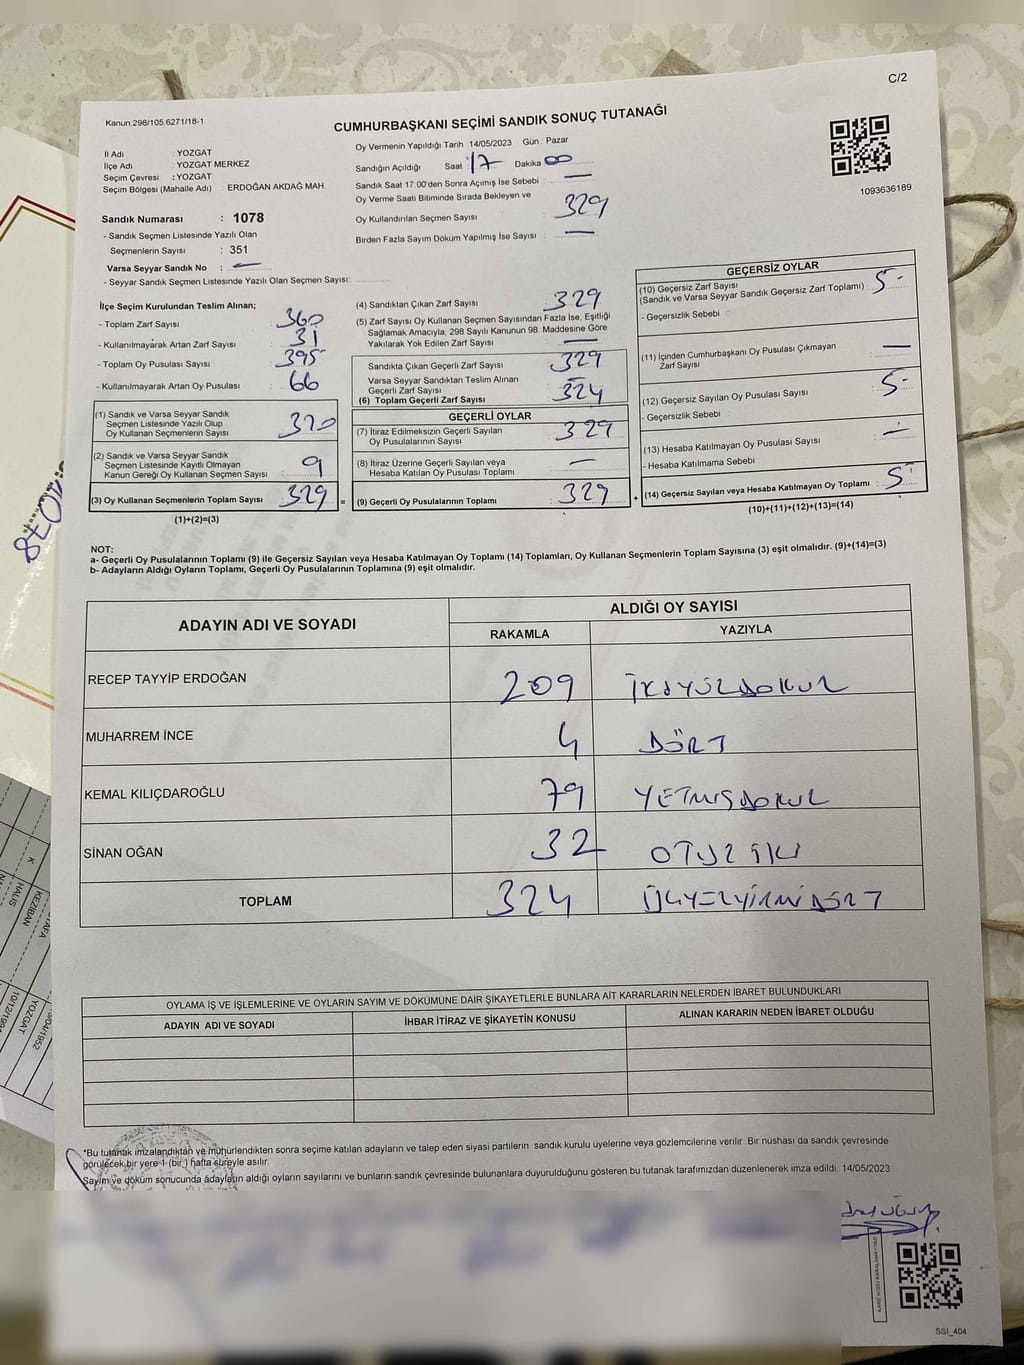 C/2
Kanun:298/105,6271/18-1
CUMHURBAŞKANI SEÇİMİ SANDIK SONUÇ TUTANAĞI
1093636189
İl Adı : YOZGAT
İlçe Adı : YOZGAT MERKEZ
Seçim Çevresi : YOZGAT
Seçim Bölgesi (Mahalle Adı) : ERDOĞAN AKDAĞ MAH.
Sandık Numarası : 1078
- Sandık Seçmen Listesinde Yazılı Olan
Seçmenlerin Sayısı : 351
Varsa Seyyar Sandık No : —
- Seyyar Sandık Seçmen Listesinde Yazılı Olan Seçmen Sayısı:
Oy Vermenin Yapıldığı Tarih :14/05/2023 Gün : Pazar
Sandığın Açıldığı Saat : 17 Dakika : 00
Sandık Saat 17.00'den Sonra Açımış İse Sebebi : —
Oy Verme Saati Bitiminde Sırada Bekleyen ve
Oy Kullandırılan Seçmen Sayısı : 329
Birden Fazla Sayım Döküm Yapılmış İse Sayısı : —
İlçe Seçim Kurulundan Teslim Alınan;
- Toplam Zarf Sayısı : 360
- Kullanılmayarak Artan Zarf Sayısı : 31
- Toplam Oy Pusulası Sayısı : 395
- Kullanılmayarak Artan Oy Pusulası : 66
(1) Sandık ve Varsa Seyyar Sandık
Seçmen Listesinde Yazılı Olup
Oy Kullanan Seçmenlerin Sayısı : 320
(2) Sandık ve Varsa Seyyar Sandık
Seçmen Listesinde Kayıtlı Olmayan
Kanun Gereği Oy Kullanan Seçmen Sayısı : 9
(3) Oy Kullanan Seçmenlerin Toplam Sayısı : 329
(1)+(2)=(3)
(4) Sandıktan Çıkan Zarf Sayısı : 329
(5) Zarf Sayısı Oy Kullanan Seçmen Sayısından Fazla İse, Eşitliği
Sağlamak Amacıyla, 298 Sayılı Kanunun 98. Maddesine Göre
Yakılarak Yok Edilen Zarf Sayısı : —
Sandıkta Çıkan Geçerli Zarf Sayısı : 329
Varsa Seyyar Sandıktan Teslim Alınan
Geçerli Zarf Sayısı : —
(6) Toplam Geçerli Zarf Sayısı : 324
GEÇERLİ OYLAR
(7) İtiraz Edilmeksizin Geçerli Sayılan
Oy Pusulalarının Sayısı : 329
(8) İtiraz Üzerine Geçerli Sayılan veya
Hesaba Katılan Oy Pusulası Toplamı : —
= (9) Geçerli Oy Pusulalarının Toplamı : 329 +
GEÇERSİZ OYLAR
(10) Geçersiz Zarf Sayısı
(Sandık ve Varsa Seyyar Sandık Geçersiz Zarf Toplamı) : 5-
- Geçersizlik Sebebi :
(11) İçinden Cumhurbaşkanı Oy Pusulası Çıkmayan
Zarf Sayısı : —
(12) Geçersiz Sayılan Oy Pusulası Sayısı : 5-
- Geçersizlik Sebebi :
(13) Hesaba Katılmayan Oy Pusulası Sayısı : —
- Hesaba Katılmama Sebebi :
(14) Geçersiz Sayılan veya Hesaba Katılmayan Oy Toplamı : 5
(10)+(11)+(12)+(13)=(14)
1078
NOT:
a- Geçerli Oy Pusulalarının Toplamı (9) ile Geçersiz Sayılan veya Hesaba Katılmayan Oy Toplamı (14) Toplamları, Oy Kullanan Seçmenlerin Toplam Sayısına (3) eşit olmalıdır. (9)+(14)=(3)
b- Adayların Aldığı Oyların Toplamı, Geçerli Oy Pusulalarının Toplamına (9) eşit olmalıdır.
ADAYIN ADI VE SOYADI
ALDIĞI OY SAYISI
RAKAMLA YAZIYLA
RECEP TAYYİP ERDOĞAN 209 İKİYÜZDOKUZ
MUHARREM İNCE 4 DÖRT
KEMAL KILIÇDAROĞLU 79 YETMİŞDOKUZ
SİNAN OĞAN 32 OTUZ İKİ
TOPLAM 324 ÜÇYÜZYİRMİDÖRT
OYLAMA İŞ VE İŞLEMLERİNE VE OYLARIN SAYIM VE DÖKÜMÜNE DAİR ŞİKAYETLERLE BUNLARA AİT KARARLARIN NELERDEN İBARET BULUNDUKLARI
ADAYIN ADI VE SOYADI İHBAR İTİRAZ VE ŞİKAYETİN KONUSU ALINAN KARARIN NEDEN İBARET OLDUĞU
K
HALİS
KEZİBAN
YOZGAT
*Bu tutanak imzalandıktan ve mühürlendikten sonra seçime katılan adayların ve talep eden siyasi partilerin sandık kurulu üyelerine veya gözlemcilerine verilir. Bir nüshası da sandık çevresinde
görülecek bir yere 1 (bir ) hafta süreyle asılır.
Sayım ve döküm sonucunda adayların aldığı oyların sayılarını ve bunların sandık çevresinde bulunanlara duyurulduğunu gösteren bu tutanak tarafımızdan düzenlenerek imza edildi. 14/05/2023
SSI_404